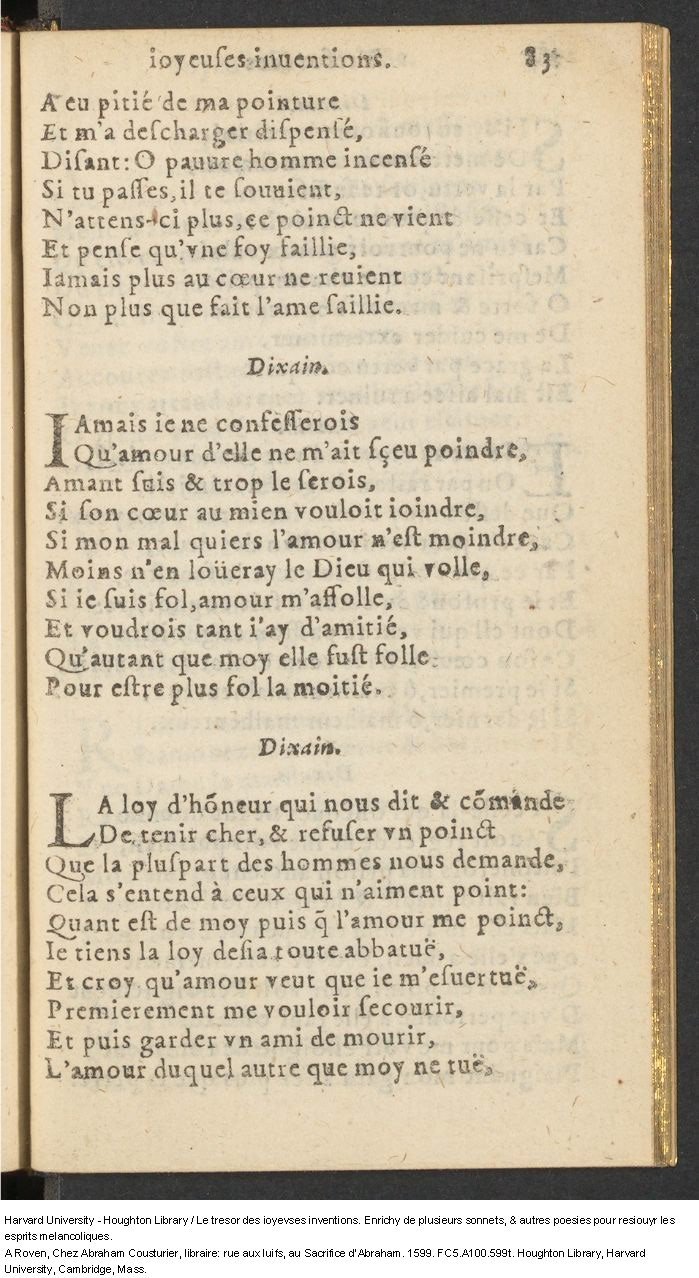 ioyeuſes inuentions. 83
A eu pitié de ma pointure
Et m'a deſcharger diſpenſé,
Diſant: O pauure homme incenſé
Si tu paſſes, il te ſouuient,
N'attens-ici plus, ce poinct ne vient
Et penſe qu'vne foy faillie,
Iamais plus au cœur ne reuient
Non plus que fait l'ame ſaillie.
Dixain.
IAmais ie ne confeſſerois
Qu'amour d'elle ne m'ait ſçeu poindre,
Amant ſuis & trop le ſerois,
Si ſon cœur au mien vouloit ioindre,
Si mon mal quiers l'amour n'eſt moindre,
Moins n'en loüeray le Dieu qui volle,
Si ie ſuis fol, amour m'affolle,
Et voudrois tant i'ay d'amitié,
Qu'autant que moy elle fuſt folle.
Pour eſtre plus fol la moitié.
Dixain.
LA loy d'hõneur qui nous dit & cõmande
De tenir cher, & refuſer vn poinct
Que la pluſpart des hommes nous demande,
Cela s'entend à ceux qui n'aiment point:
Quant eſt de moy puis q̃ l'amour me poinct,
Ie tiens la loy deſia toute abbatuë,
Et croy qu'amour veut que ie m'eſuertuë,
Premierement me vouloir ſecourir,
Et puis garder vn ami de mourir,
L'amour duquel autre que moy ne tuë,
Harvard University - Houghton Library / Le tresor des ioyevses inventions. Enrichy de plusieurs sonnets, & autres poesies pour resiouyr les
esprits melancoliques.
A Roven, Chez Abraham Cousturier, libraire: rue aux Iuifs, au Sacrifice d'Abraham. 1599. FC5.A100.599t. Houghton Library, Harvard
University, Cambridge, Mass.